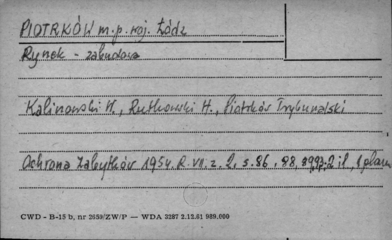 PIOTRKÓW m.p. woj. Łódź
Rynek - zabudowa
Kalinowski W., Rutkowski H., Piotrków Trybunalski
Ochrona Zabytków 1954. R. VII. z. 2, s. 86, 88, 2 il, 1 plan
CWD - B-15 b, nr 2659/ZW/P — WDA 2287 2.12.61 989.000